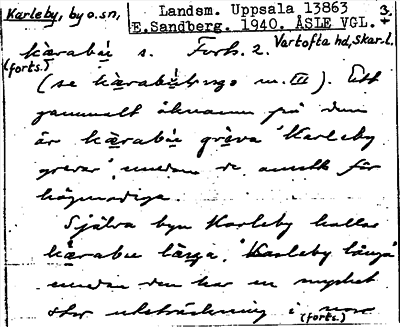 Karleby, by o. sn, Landsm. Uppsala 13863 3.
E.Sandberg. 1940. ÅSLE VGL.
Vartofta hd, Skar. l.
kärabu s. Forts. 2.
(forts.)
(se kärabubygo m. III). Ett
gammalt öknamn på dem
är kärabu grèva "Karleby
grevar", emedan de ansetts för
högmodiga.
Själva byn Karleby kallas
kärabu làŋa, "Karleby långa"
emedan den har en mycket
stor utsträckning i norr
(forts.)